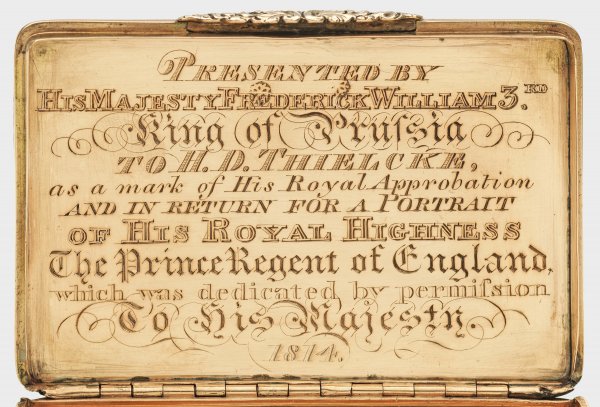 PRESENTED BY
HIS MAJESTY FREDERICK WILLIAM 3.RD
King of Prussia
TO H. D. THIELCKE,
as a mark of His Royal Approbation
AND IN RETURN FOR A PORTRAIT
OF HIS ROYAL HIGHNESS
The Prince Regent of England,
which was dedicated by permission
To His Majesty.
1814.